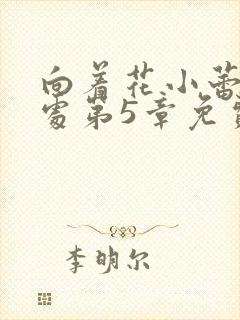 向着花小蕾
处第5章免费
李明尔